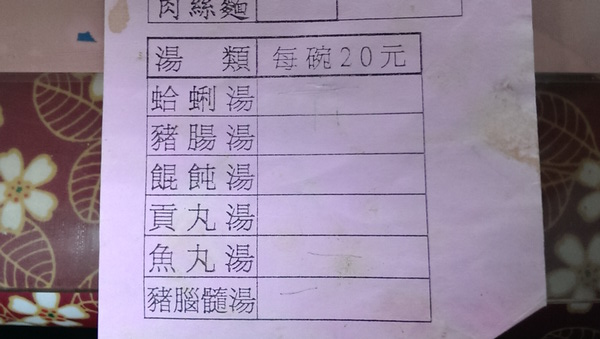 肉絲麵
湯類 每碗20元
蛤蜊湯
豬腸湯
餛飩湯
貢丸湯
魚丸湯
豬腦髓湯